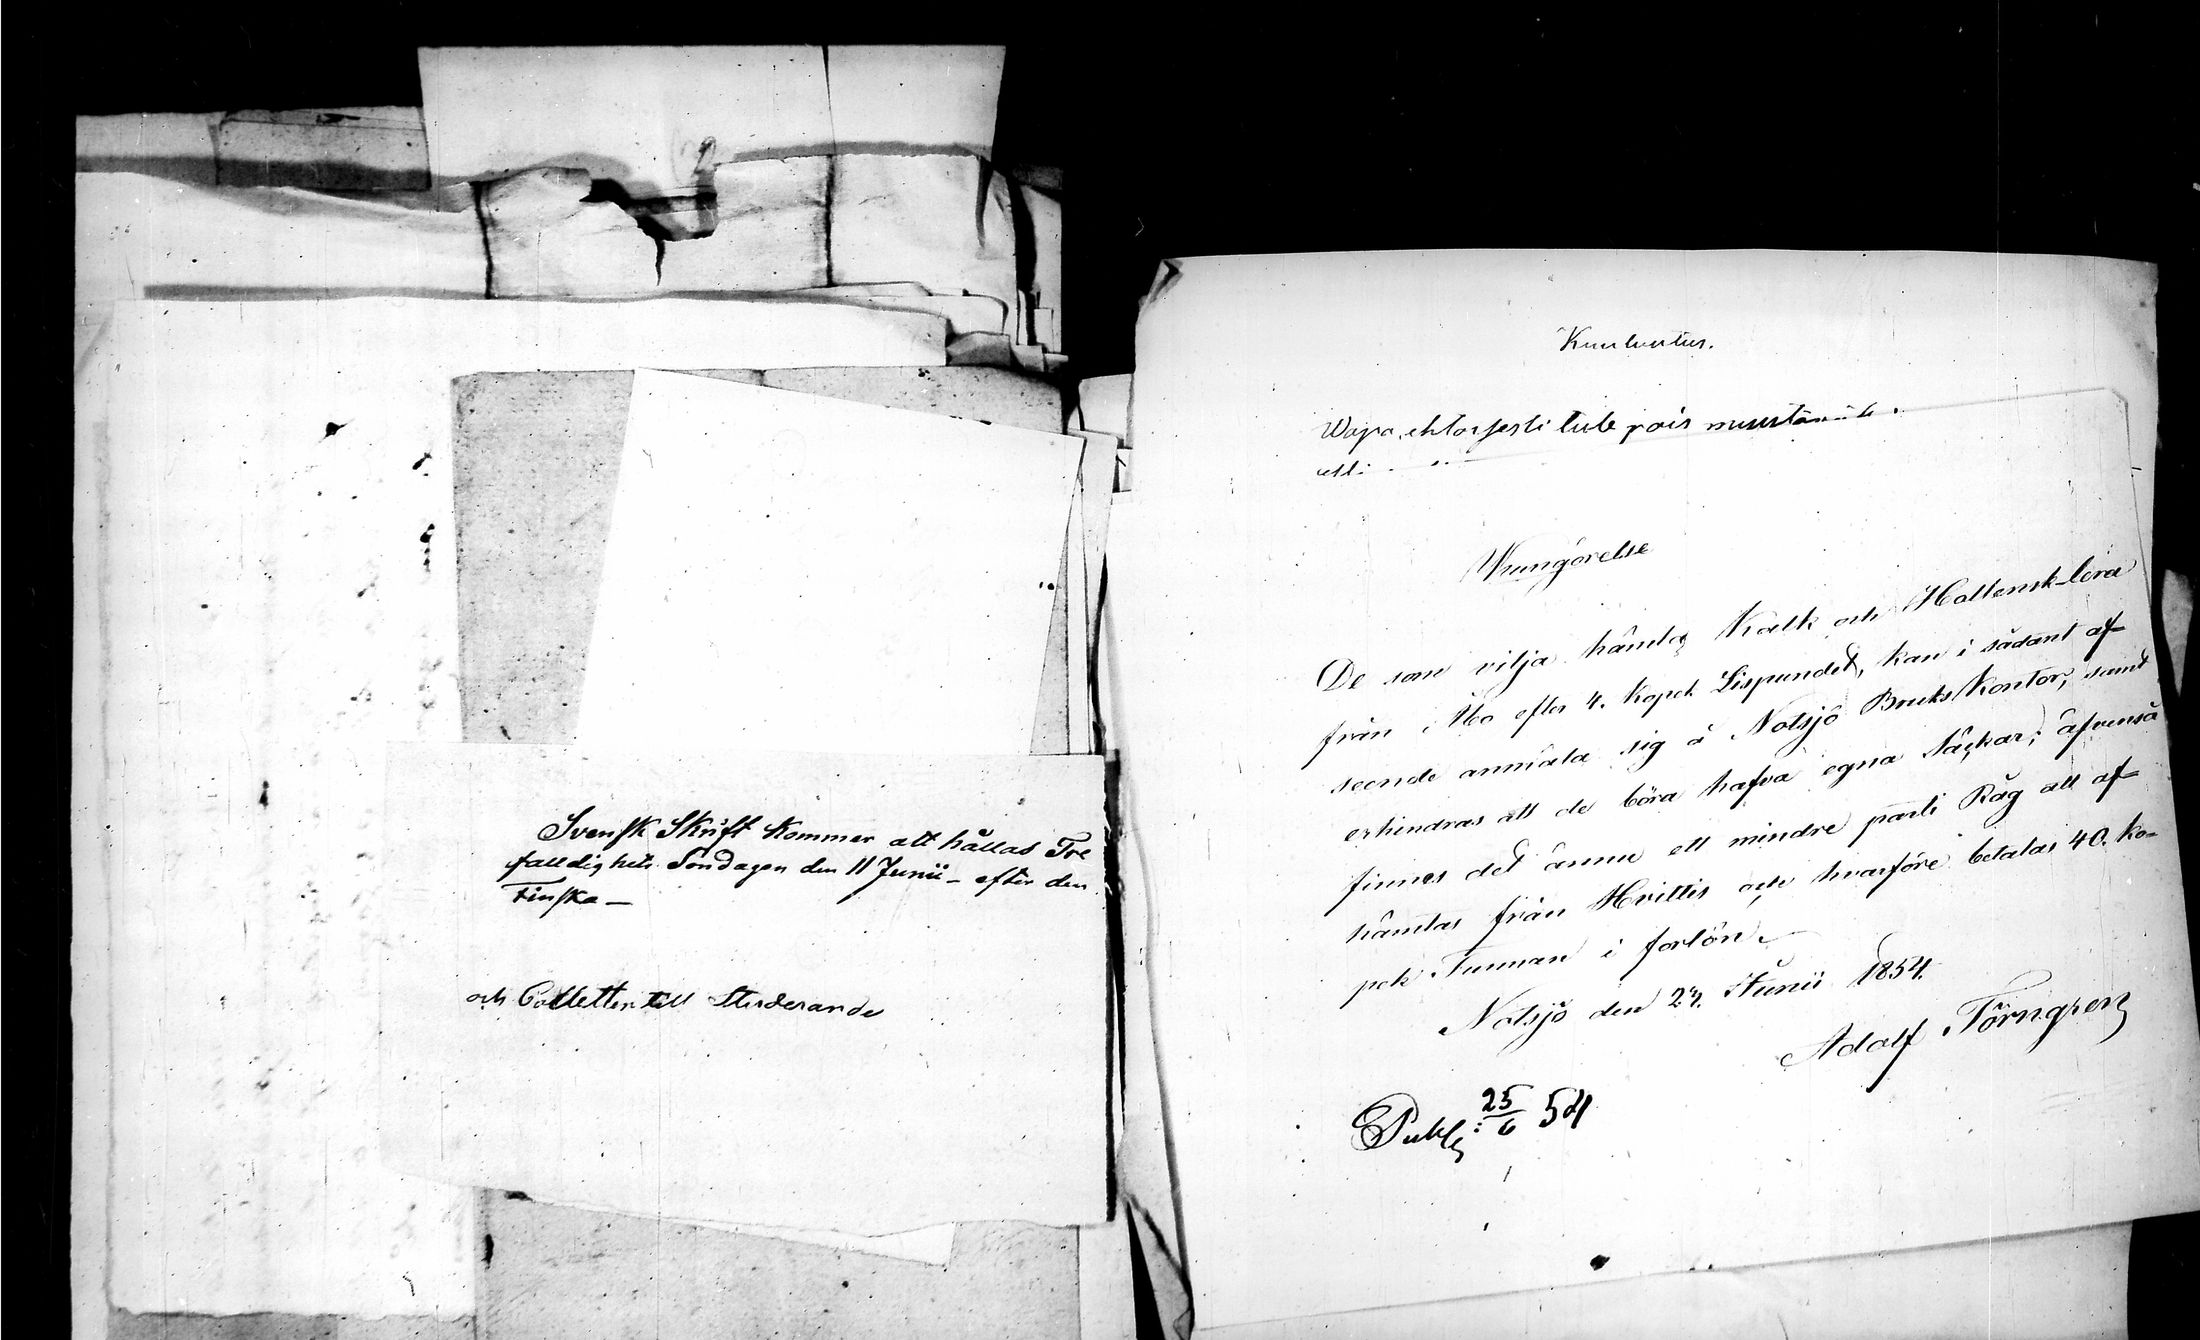 Svensk Skrift kommer att hållas Tre
falldighets Söndagen den 11 Junii – efter den
Finska –
och Colletten till Studerande
Kuulustus.
Wapa, ehtoisesti tule pois muutämäl
ett:
Kungörelse
De som vilja hämta Kalk och Hallensk-lera
från Åbo efter 4. kopek Lispundet, kan i sådant af-
seende anmäla sig å Notsjö Bruks Kontor, samt
erhindras att de böra hafva egna säckar; äfvenså
finnes det ännu ett mindre parti Råg att af-
hämtas från Hvittis och hvarföre betalas 40. ko-
pek Tunnan i forlön.
Notsjö den 24. Junii 1854.
Adolf Törngren
Publ: 25/6 54